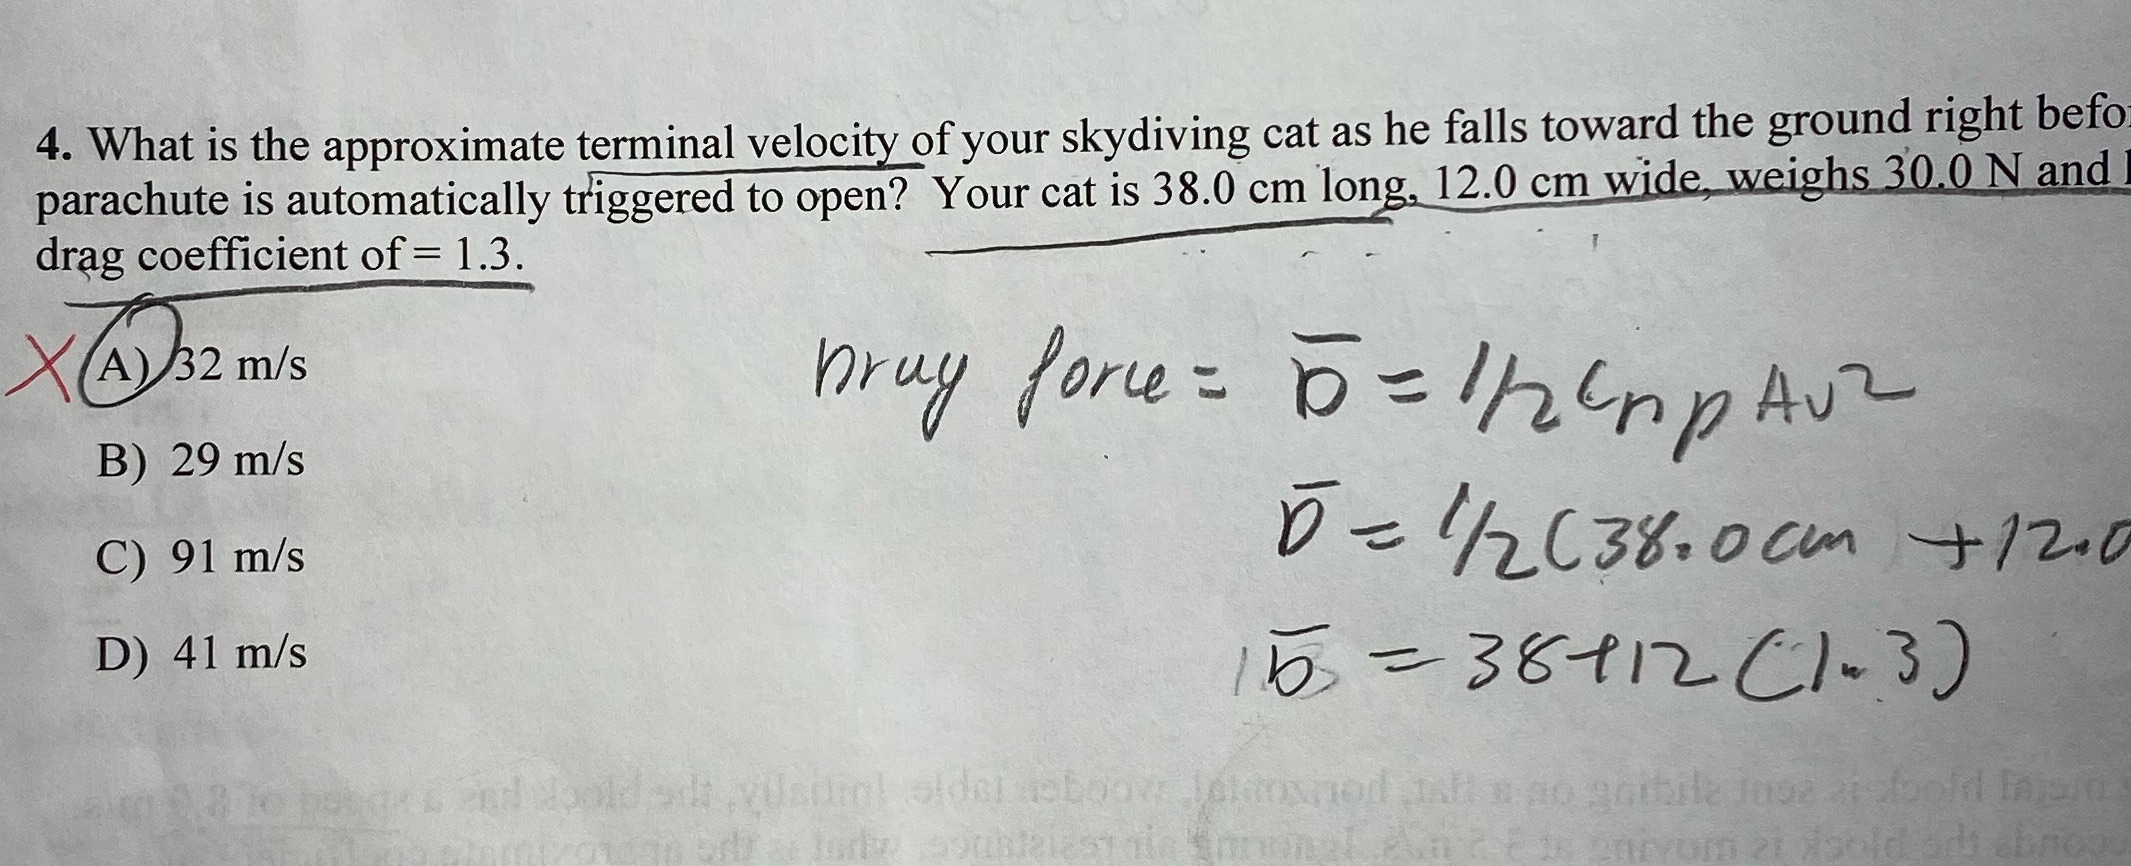 4. What is the approximate terminal velocity of your skydiving cat as he falls toward the ground right
parachute is automatically triggered to open? Your cat is 38.0 cm long, 12.0 cm wide, weighs 30.0 N and
drag coefficient of = 1.3.
X A) 32 m/s
B) 29 m/s
C) 91 m/s
D) 41 m/s
Drag force = D = 1/2 C D p Av2
D = 1/2 (38.0 cm + 12.0
D = 38+12 (1.3)